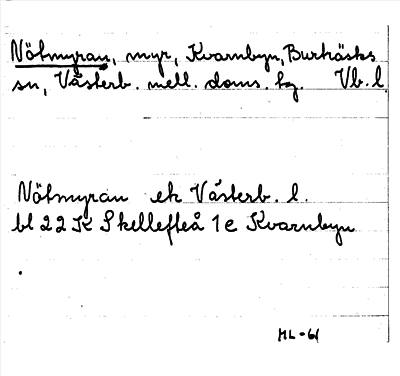 Nötmyran, myr, Kvarnbyn, Burträsks
sn, Västerb. mell. doms. hg. Vb. l.
Nötmyran ek Västerb. l.
bl 22 K Skellefteå 1 e Kvarnbyn
ML-61